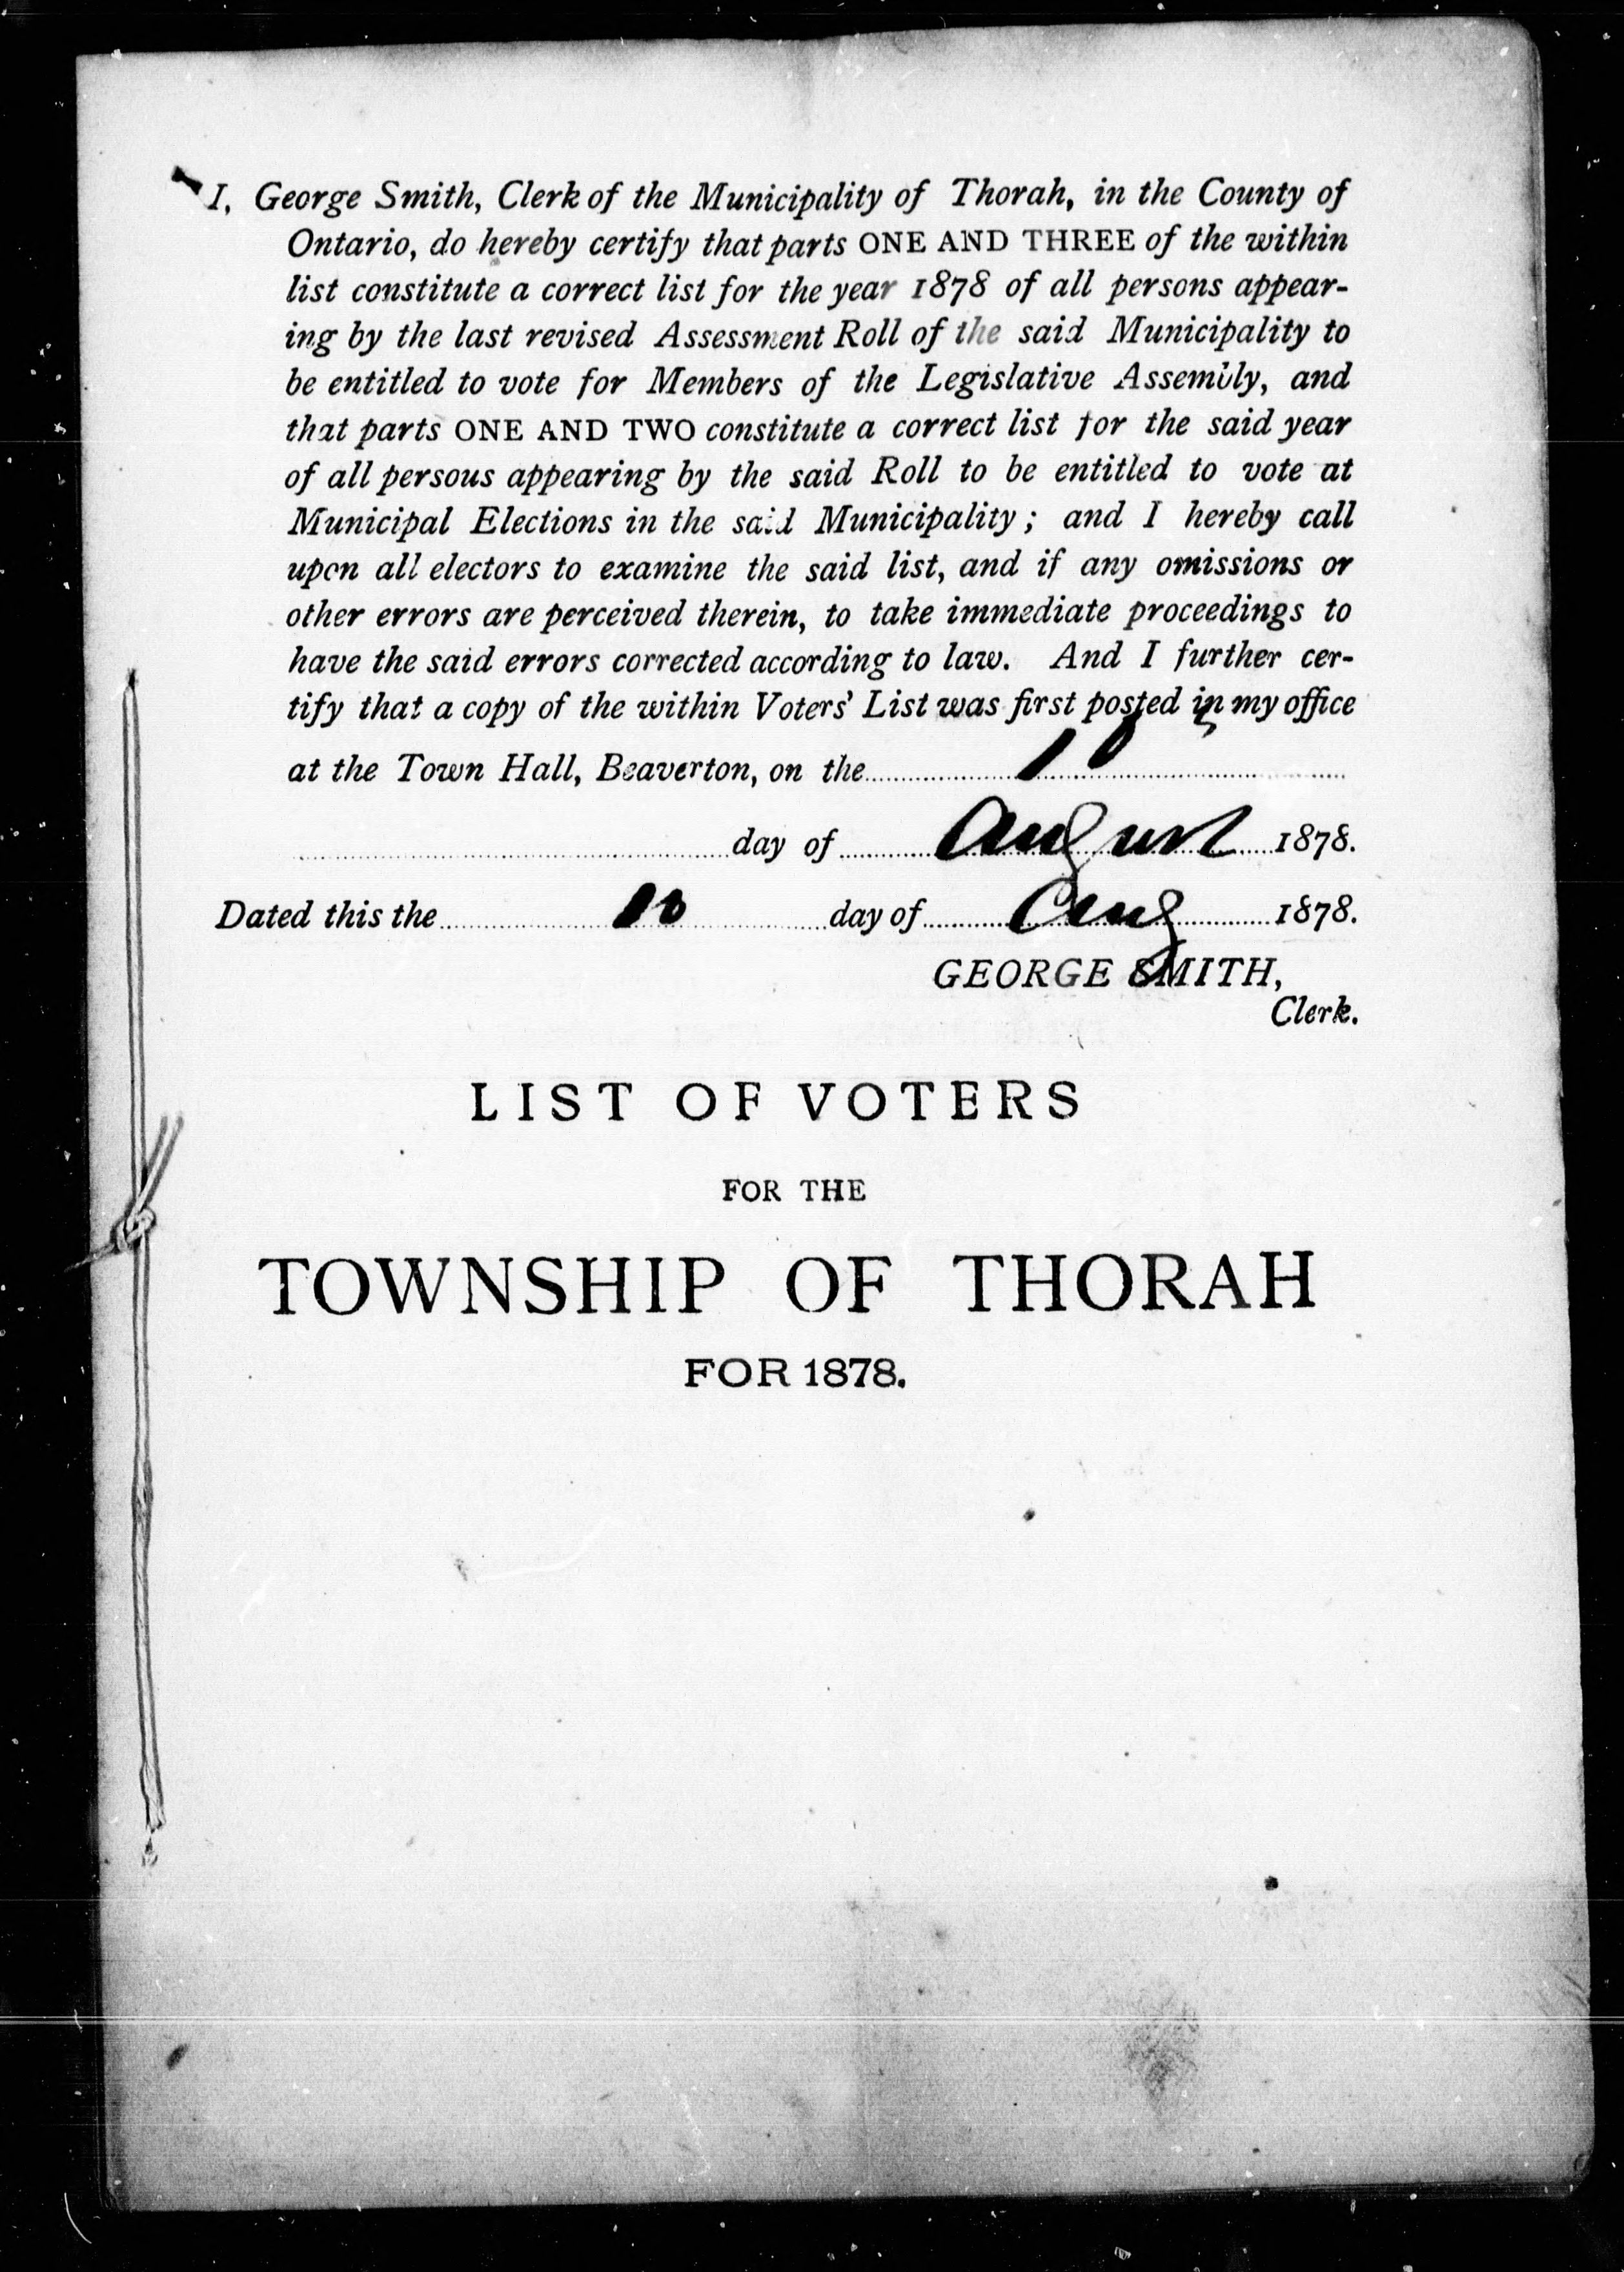 I, George Smith, Clerk of the Municipality of Thorah, in the County of
Ontario, do hereby certify that parts ONE AND THREE of the within
list constitute a correct list for the year 1878 of all persons appear-
ing by the last revised Assessment Roll of the said Municipality to
be entitled to vote for Members of the Legislative Assembly, and
that parts ONE AND TWO constitute a correct list for the said year
of all persous appearing by the said Roll to be entitled to vote at
Municipal Elections in the said Municipality; and I hereby call
upon all electors to examine the said list, and if any omissions or
other errors are perceived therein, to take immediate proceedings to
have the said errors corrected according to law. And I further cer-
tify that a copy of the within Voters' List was first posted in my office
at the Town Hall, Beaverton, on the 10
day of August 1878.
Dated this the 10 day of Aug 1878.
GEORGE SMITH,
Clerk.
LIST OF VOTERS
FOR THE
TOWNSHIP OF THORAH
FOR 1878.